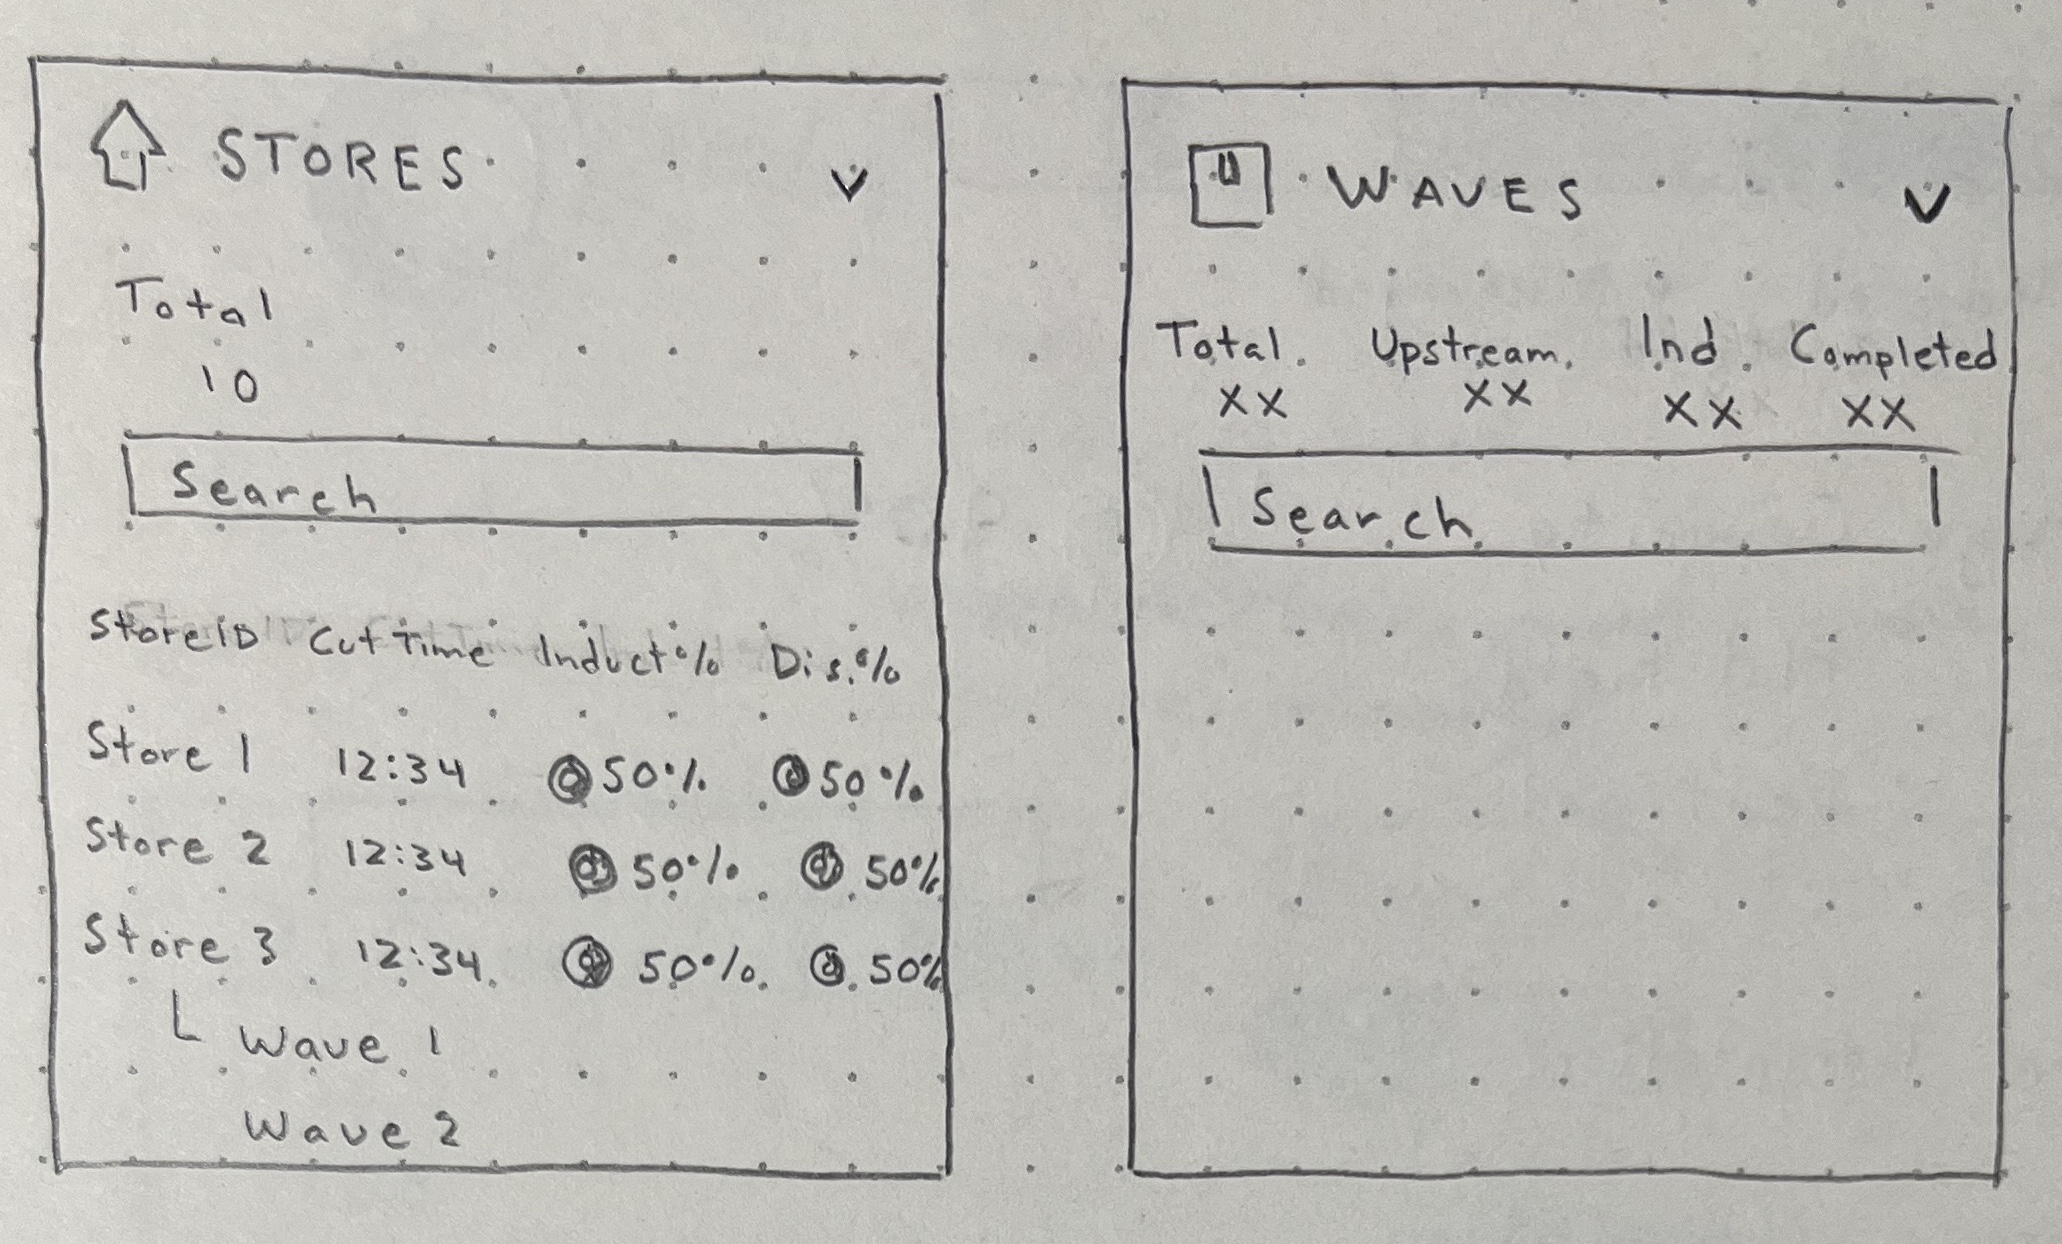 STORES
Total
10
Search
StoreID Cut Time Induct% Dis.%
Store 1 12:34 50% 50%
Store 2 12:34 50% 50%
Store 3 12:34 50% 50%
Wave 1
Wave 2
WAVES
Total Upstream Ind. Completed
XX XX XX XX
Search